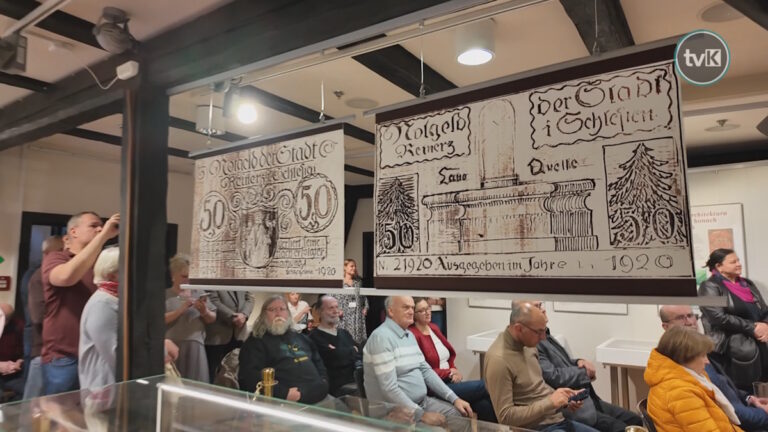 tvK
Notgeld der Stadt
Reinerz i. Schlesien
50
50
1920
Notgeld
Reinerz
der Stadt
i Schlesien
Laue
Quelle
50
50
No 21920 Ausgegeben im Jahre 1920